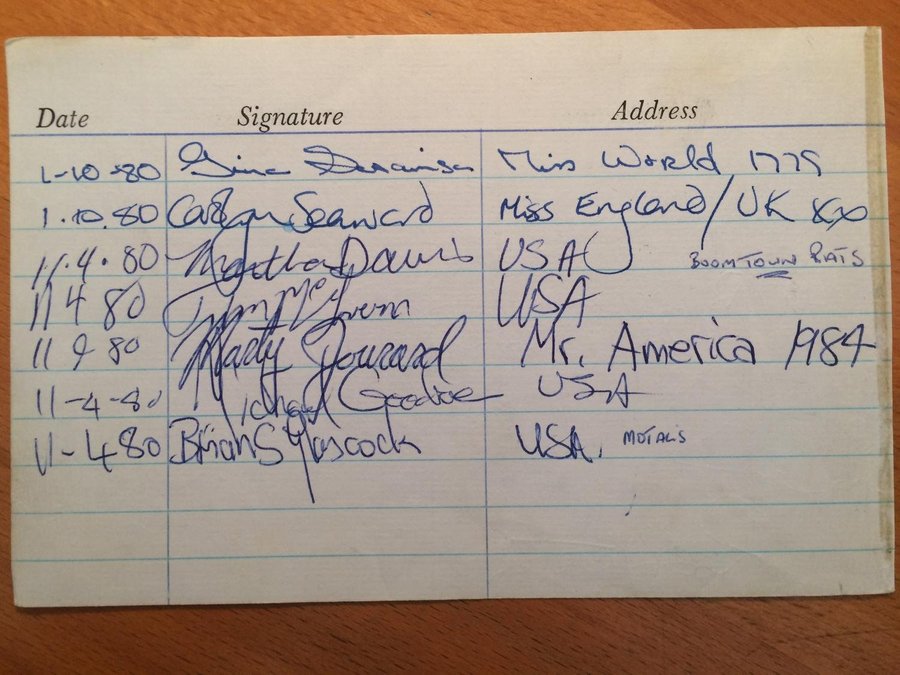 Date Signature Address
1-10-80 Gina Swainson Miss World 1779
1.10.80 Carolyn Seaward Miss England/UK xxx
11.4.80 Martha Davis USA BOOMTOWN RATS
11 4 80 Tim McGovern USA
11 9 80 Marty Jourard Mr. America 1984
11-4-80 Michael Goodroe USA
11-480 Brian Glascock USA. MOTALS